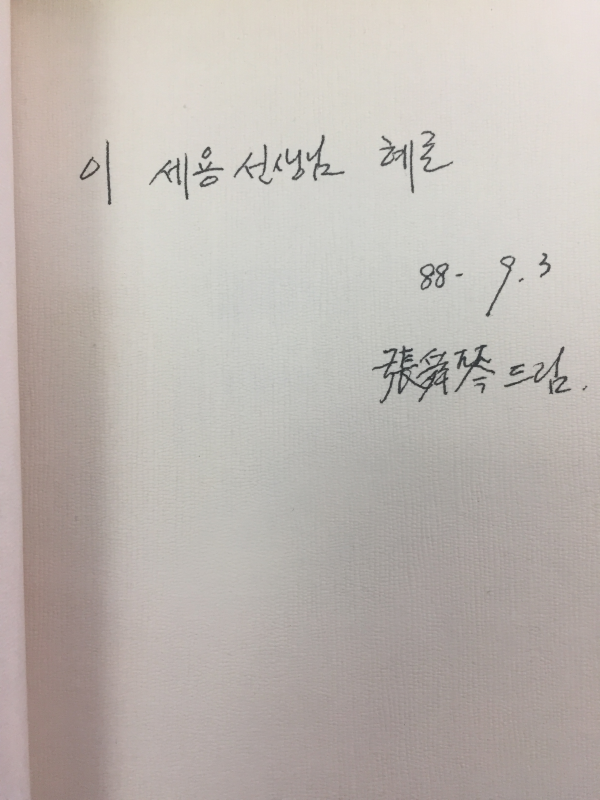 이 세용 선생님 혜존
88- 9. 3
張舜琴 드림.